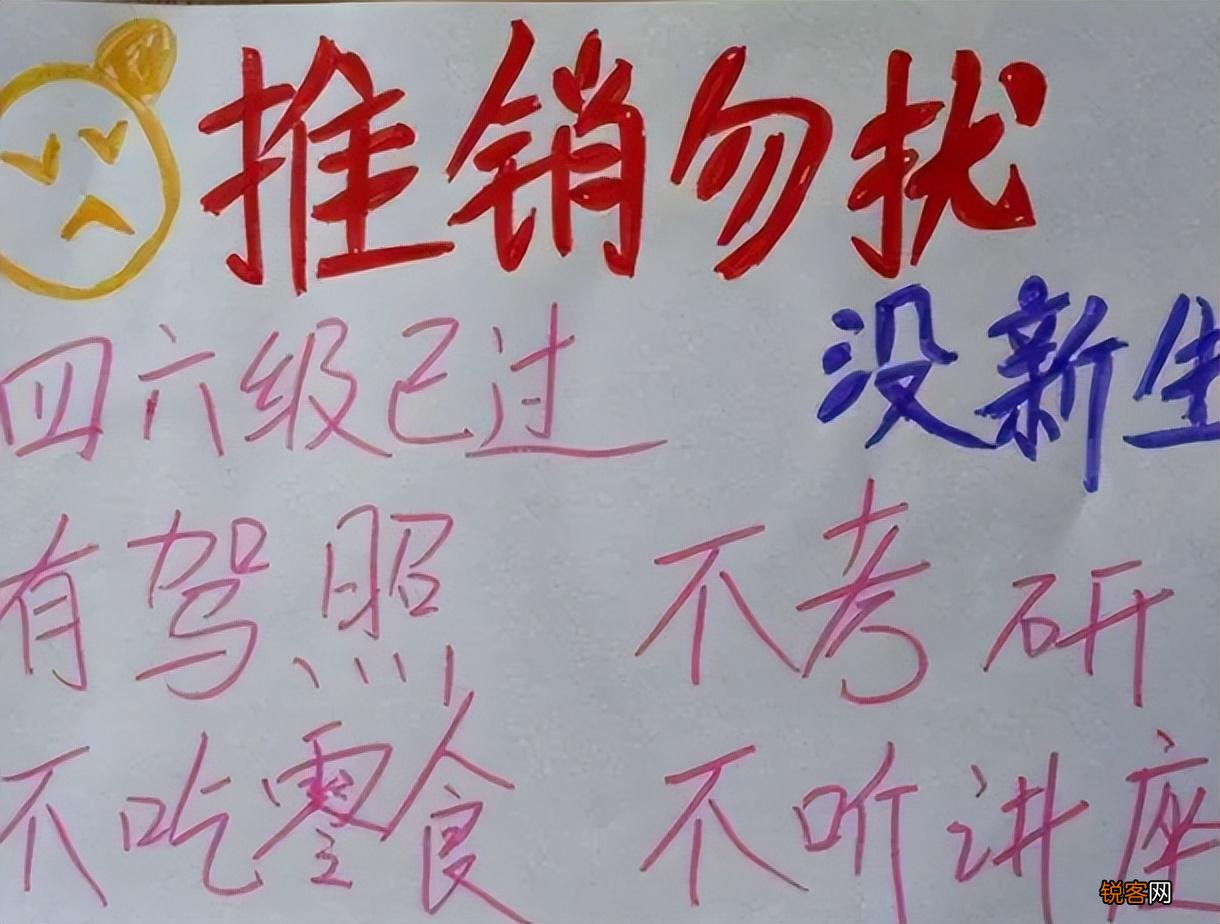 推销勿扰
四六级已过 没新生
有驾照 不考研
不吃零食 不听讲座
锐客网